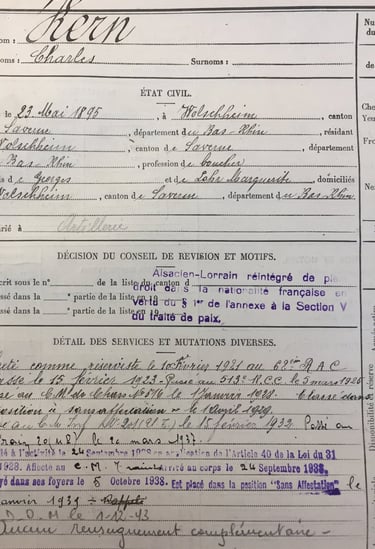 Kern
om :
Nu
oms : Charles Surnoms :
de
ÉTAT CIVIL.
le 23 Mai 1895, à Wolschheim, canton
Saverne, département du Bas-Rhin, résidant
Wolschheim, canton de Saverne, département
Bas-Rhin, profession de boucher
s de Georges et de Lohr Marguerite domiciliés
Wolschheim, canton de Saverne, département du Bas-Rhin
arié à Artillerie
DÉCISION DU CONSEIL DE REVISION ET MOTIFS.
crit sous le n° de la liste du canton d
Alsacien-Lorrain réintégré de plein
ssé dans la ° partie de la liste en 19
droit dans la nationalité française en
ssé dans la ° partie de la liste en 19
vertu du § 1er de l'annexe à la Section V
du traité de paix.
DÉTAIL DES SERVICES ET MUTATIONS DIVERSES.
comme réserviste le 10 Février 1921 au 62e R.A.C
le 15 février 1923 - Passé au 513e R.C.C. le 5 mars 1926
au C.M. de Char. N° 576 le 1 Janvier 1928 - Classé dans
position à sans affectation - le 1 Avril 1929.
le 15 février 1932. Passé au
le 20 mars 1937.
é à l'activité le 24 Septembre 1938 en application de l'Article 40 de la Loi du 31
1928. Affecté au C.M. Train Arrivé au corps le 24 Septembre 1938
yé dans ses foyers le 5 Octobre 1938. Est placé dans la position "Sans Affectation" le
janvier 1939 Rappelé
D.M le 1-12-43
Aucun renseignement complémentaire -